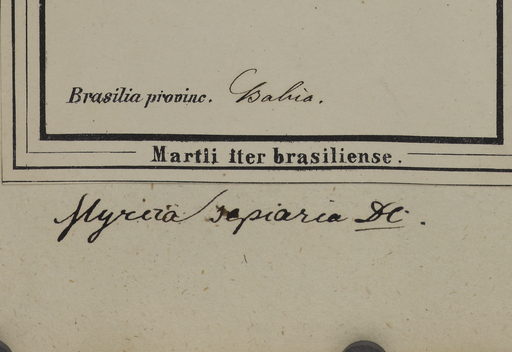 Brasilia provinc. Bahia.
Martii iter brasiliense.
Myrcia sepiaria DC.